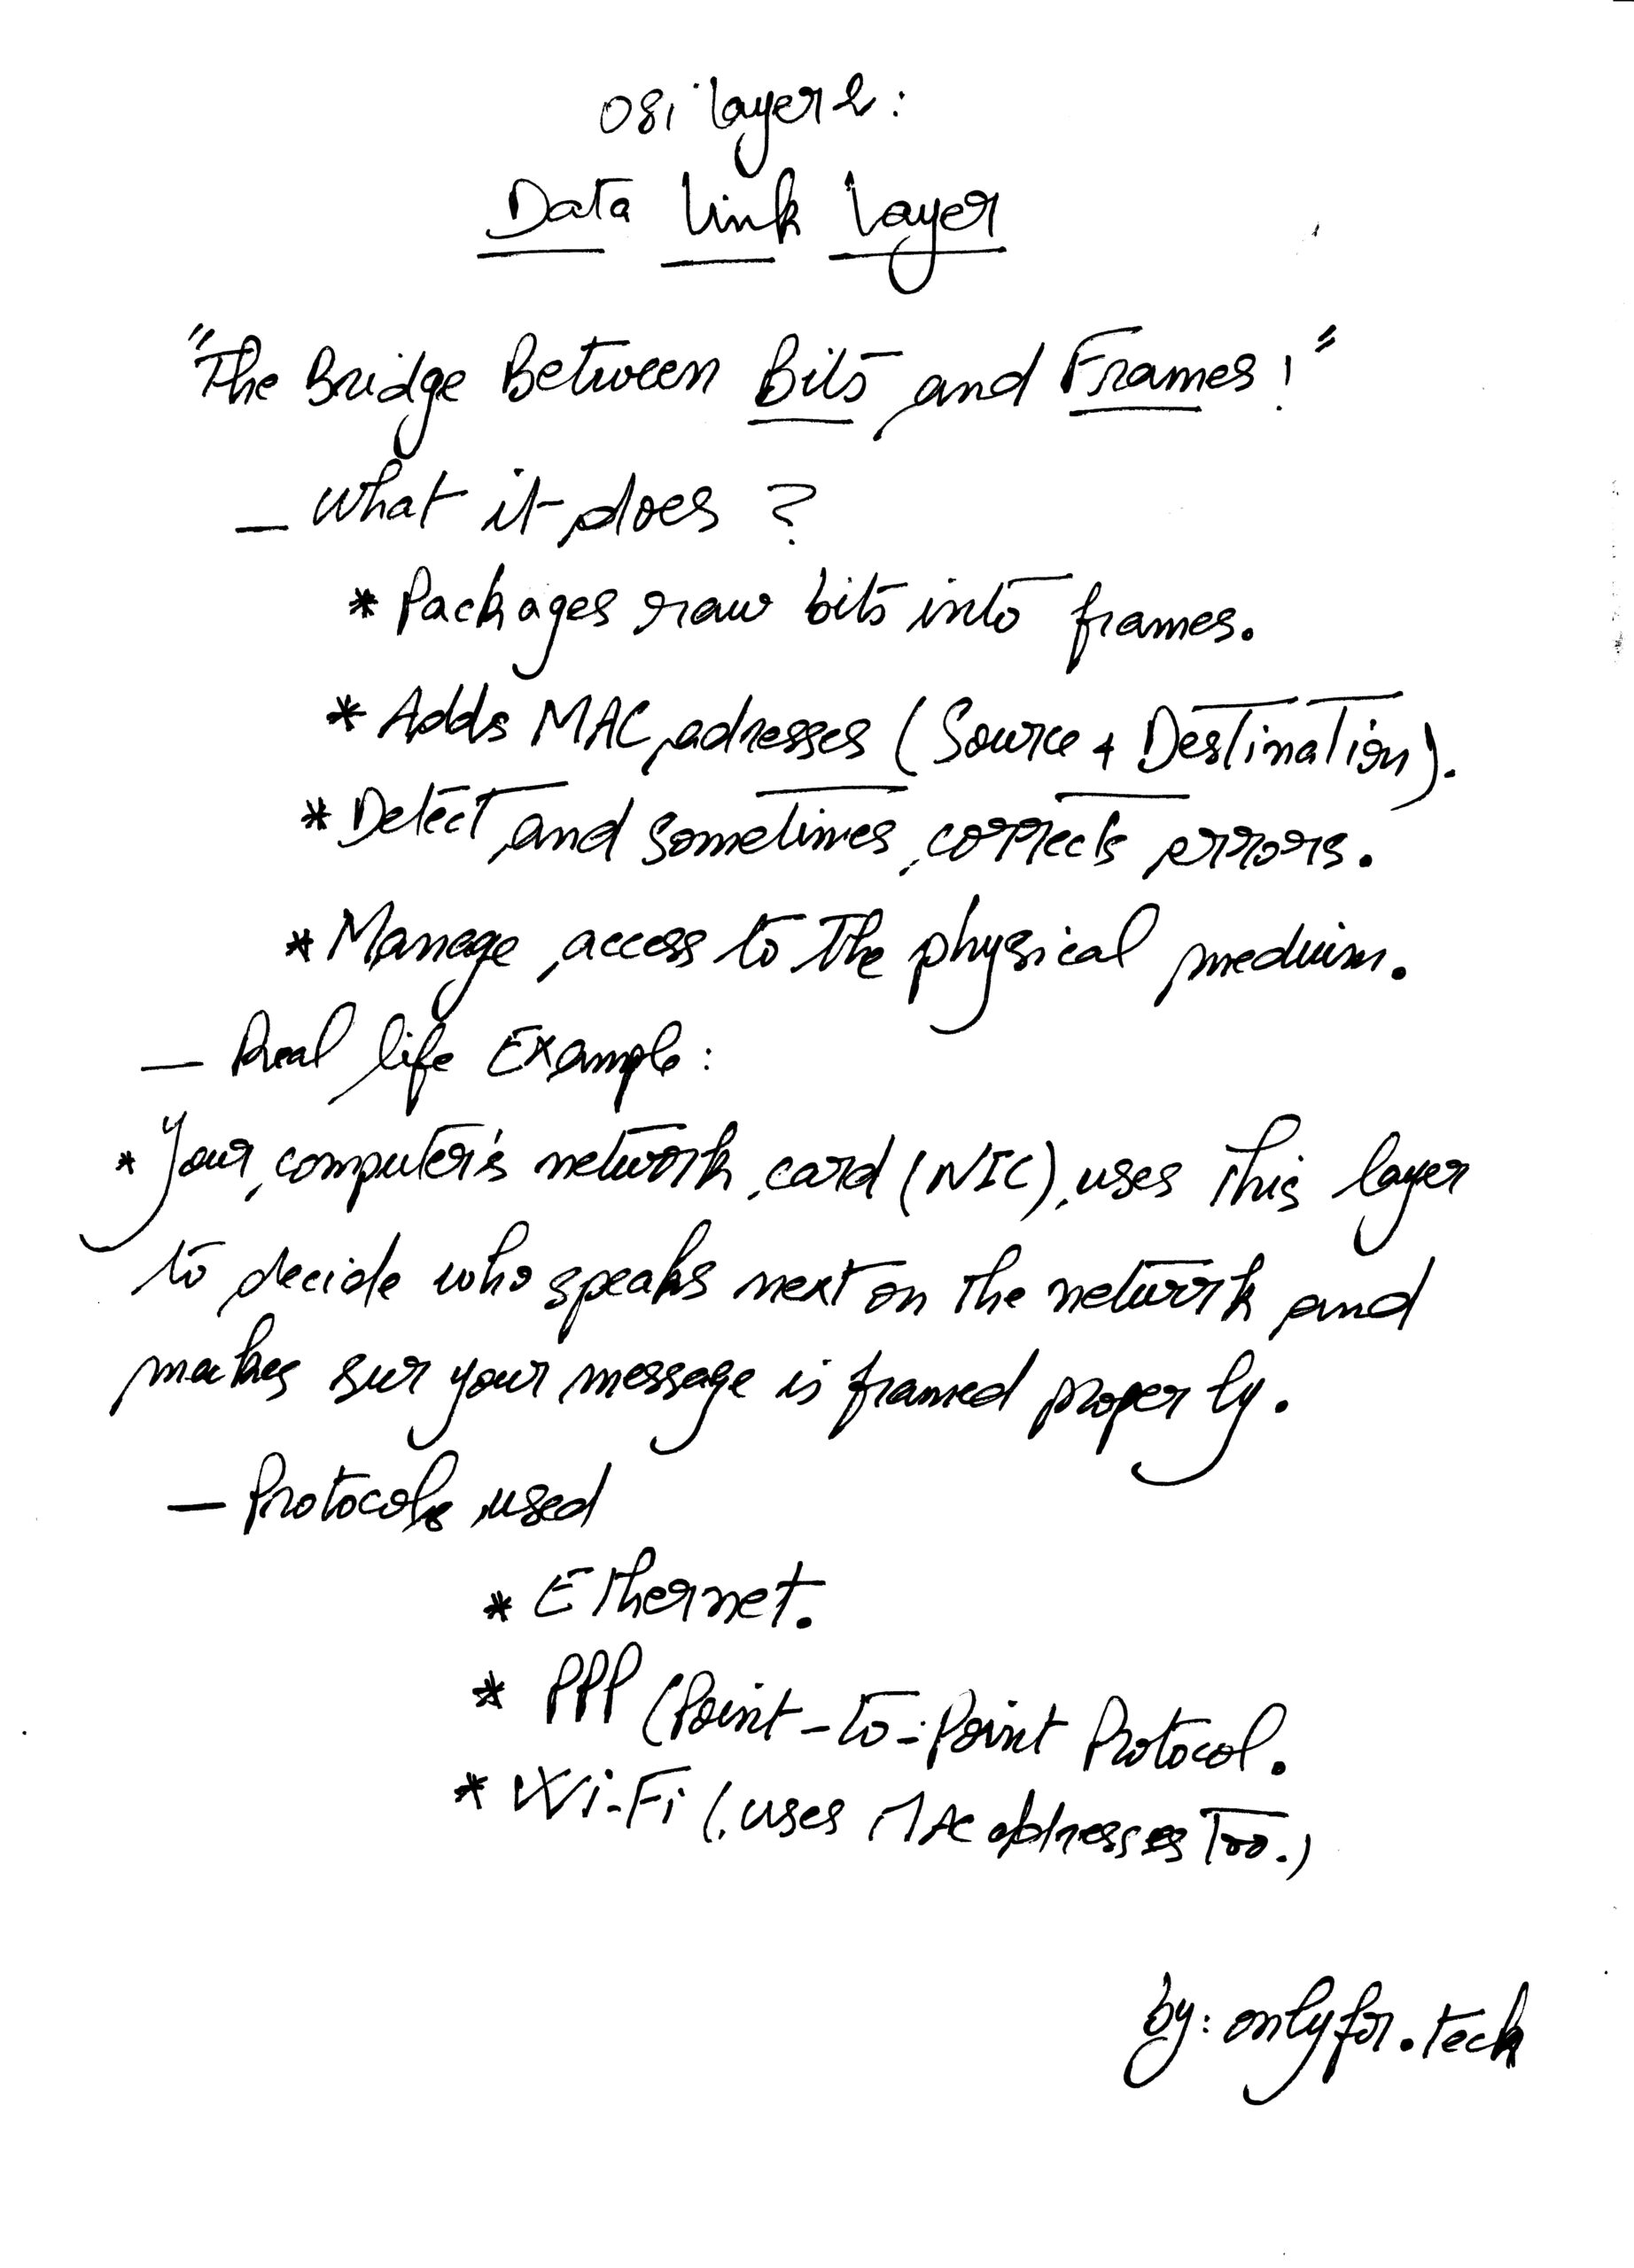 OSI layer 2:
Data Link Layer
"The Bridge Between Bits and Frames!"
— What it does ?
* Packages raw bits into frames.
* Adds MAC adresses (Source + Destination).
* Detect and sometimes corrects errors.
* Manage access to the physical meduim.
— Real life Example:
* Your computer's network card (NIC) uses this layer
to decide who speaks next on the network and
makes sur your message is framed properly.
— Protocols used
* Ethernet.
* PPP (Point-to-Point Protocol.
* Wi-Fi (uses MAC addresses Too.)
by: onlyfor.tech